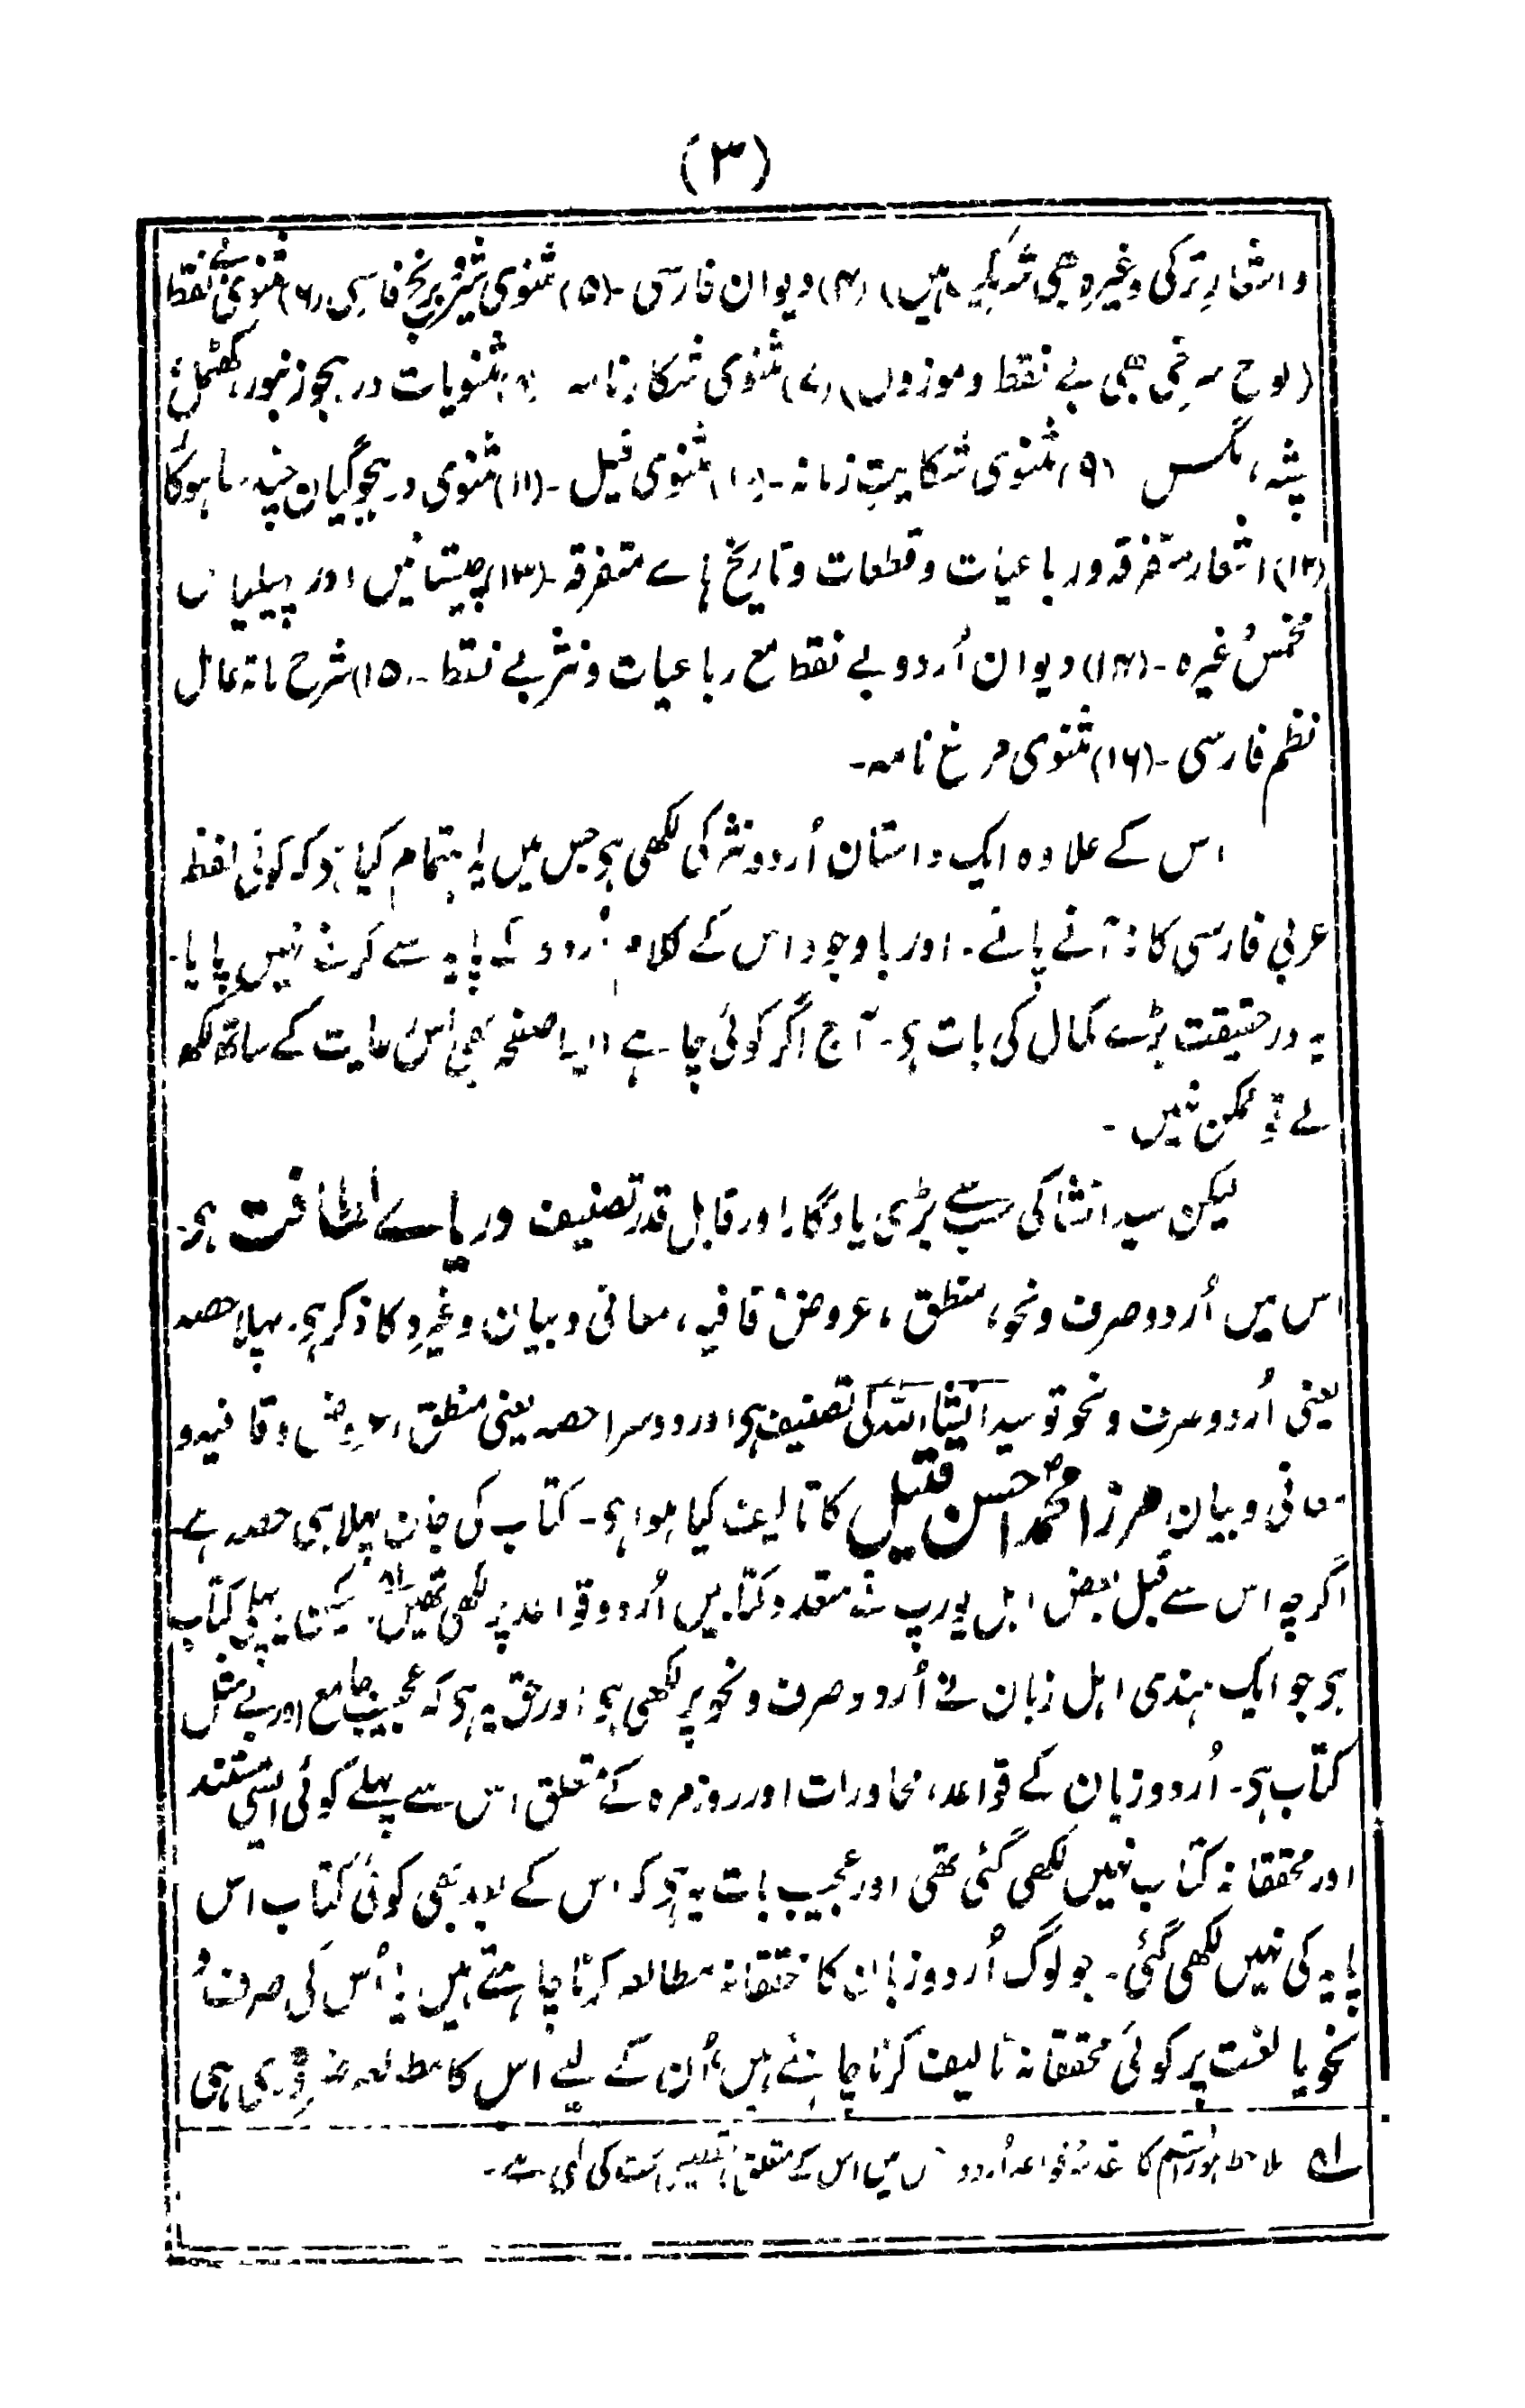 (۳)
و اشعار ترکی وغیرہ بھی شریک ہیں) (۴) دیوان فارسی - (۵) مثنوی شیر برنج فارسی (۶) مثنوی بے نقط
(لوح سرخی بھی بے نقط و موزوں) (۷) مثنوی شکار نامہ (۸) مثنویات در ہجو زنبور، کھٹمل،
پشہ، مگس (۹) مثنوی شکایتِ زمانہ - (۱۰) مثنوی فیل - (۱۱) مثنوی در ہجو گیان چند ساہوکار
(۱۲) اشعار متفرقہ و رباعیات و قطعات و تاریخ ہاے متفرقہ - (۱۳) چیستانیں اور پہیلیاں
مخمس وغیرہ - (۱۴) دیوان اُردو بے نقط مع رباعیات و نثر بے نقط - (۱۵) شرح مائۃ عامل
نظم فارسی - (۱۶) مثنوی مرغ نامہ -
اس کے علاوہ ایک داستان اُردو نثر کی لکھی ہی جس میں یہ اہتمام کیا ہی کہ کوئی لفظ
عربی فارسی کا نہ آنے پائے - اور باوجود اس کے کلام اُردو کے پایہ سے گرنے نہیں پایا -
یہ درحقیقت بڑے کمال کی بات ہی - آج اگر کوئی چاہے ایسا صفحہ بھی اس رعایت کے ساتھ لکھ
لے تو ممکن نہیں -
لیکن سید انشا کی سب سے بڑی یادگار اور قابل قدر تصنیف دریاے لطافت ہی -
اس میں اُردو صرف و نحو، منطق، عروض قافیہ، معانی و بیان وغیرہ کا ذکر ہی - پہلا حصہ
یعنی اُردو صرف و نحو تو سید انشاء اللہ کی تصنیف ہی اور دوسرا حصہ یعنی منطق، عروض و قافیہ و
معانی و بیان مرزا محمد احسن قتیل کا تالیف کیا ہوا ہی - کتاب کی جان پہلا ہی حصہ ہے -
اگرچہ اس سے قبل بعض اہل یورپ نے متعدد کتابیں اُردو قواعد پر لکھی تھیں لہ لیکن یہ پہلی کتاب
ہی جو ایک ہندی اہل زبان نے اُردو صرف و نحو پر لکھی ہی اور حق یہ ہی کہ عجیب جامع اور بے مثل
کتاب ہی - اُردو زبان کے قواعد، محاورات اور روزمرہ کے متعلق اس سے پہلے کوئی ایسی مستند
اور محققانہ کتاب نہیں لکھی گئی تھی اور عجیب بات یہ ہی کہ اس کے بعد بھی کوئی کتاب اس
پایہ کی نہیں لکھی گئی - جو لوگ اُردو زبان کا محققانہ مطالعہ کرنا چاہتے ہیں یا اُس کی صرف و
نحو یا لغت پر کوئی محققانہ تالیف کرنا چاہتے ہیں اُن کے لیے اس کا مطالعہ ضروری ہی
لہ ملاحظہ ہو راقم کا مقدمہ قواعد اُردو میں اس کے متعلق کی گئی ہے -